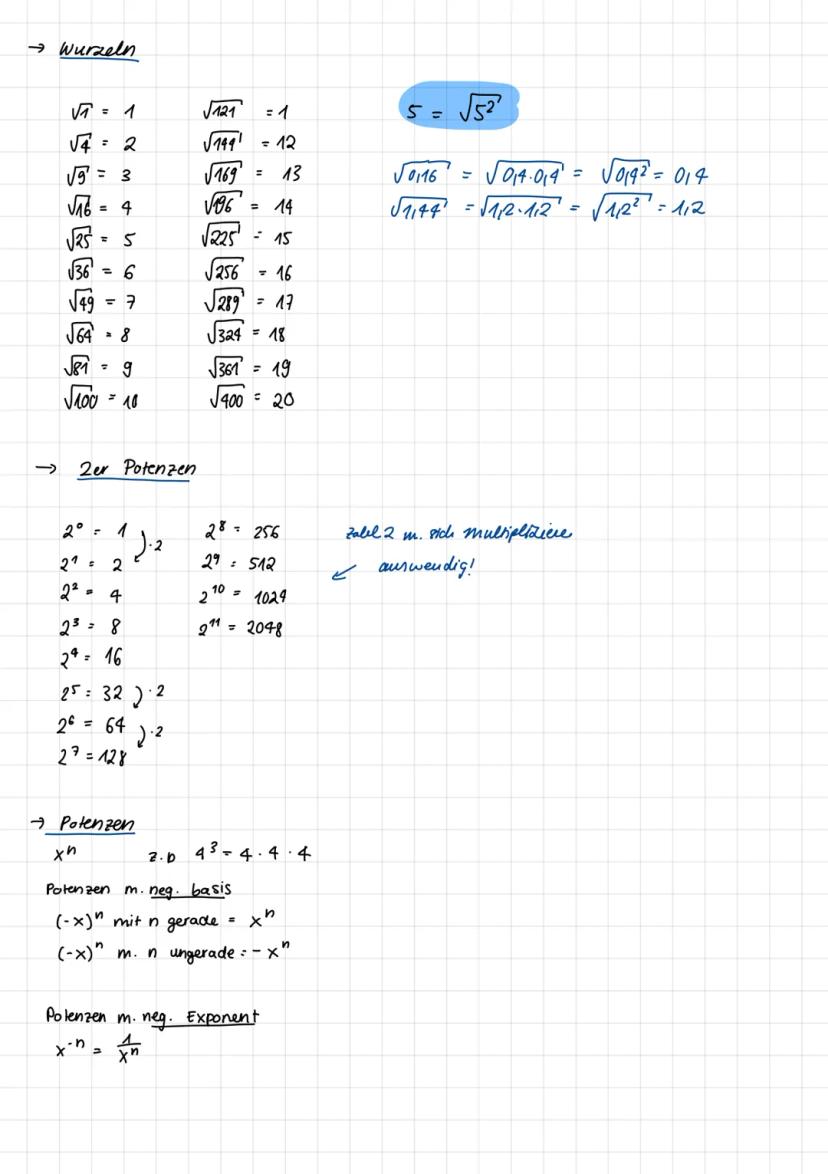 → Wurzeln
√1 = 1
√4 = 2
√9 = 3
√16 = 4
√25 = 5
√36 = 6
√49 = 7
√64 = 8
√81 = 9
√100 = 10
√121 = 1
√144 = 12
√169 = 13
√196 = 14
√225 = 15
√256 = 16
√289 = 17
√324 = 18
√361 = 19
√400 = 20
5 = √5²
√0,16 = √0,4·0,4 = √0,4² = 0,4
√1,44 = √1,2·1,2 = √1,2² = 1,2
→ 2er Potenzen
2⁰ = 1
·2
2¹ = 2
2² = 4
2³ = 8
2⁴ = 16
2⁵ = 32 ·2
2⁶ = 64
·2
2⁷ = 128
2⁸ = 256
2⁹ = 512
2¹⁰ = 1024
2¹¹ = 2048
zahl 2 m. sich multipliziere
← auswendig!
→ Potenzen
xⁿ z.b 4³ = 4 · 4 · 4
Potenzen m. neg. basis
(-x)ⁿ mit n gerade = xⁿ
(-x)ⁿ m. n ungerade = - xⁿ
Potenzen m. neg. Exponent
x⁻ⁿ = 1/xⁿ